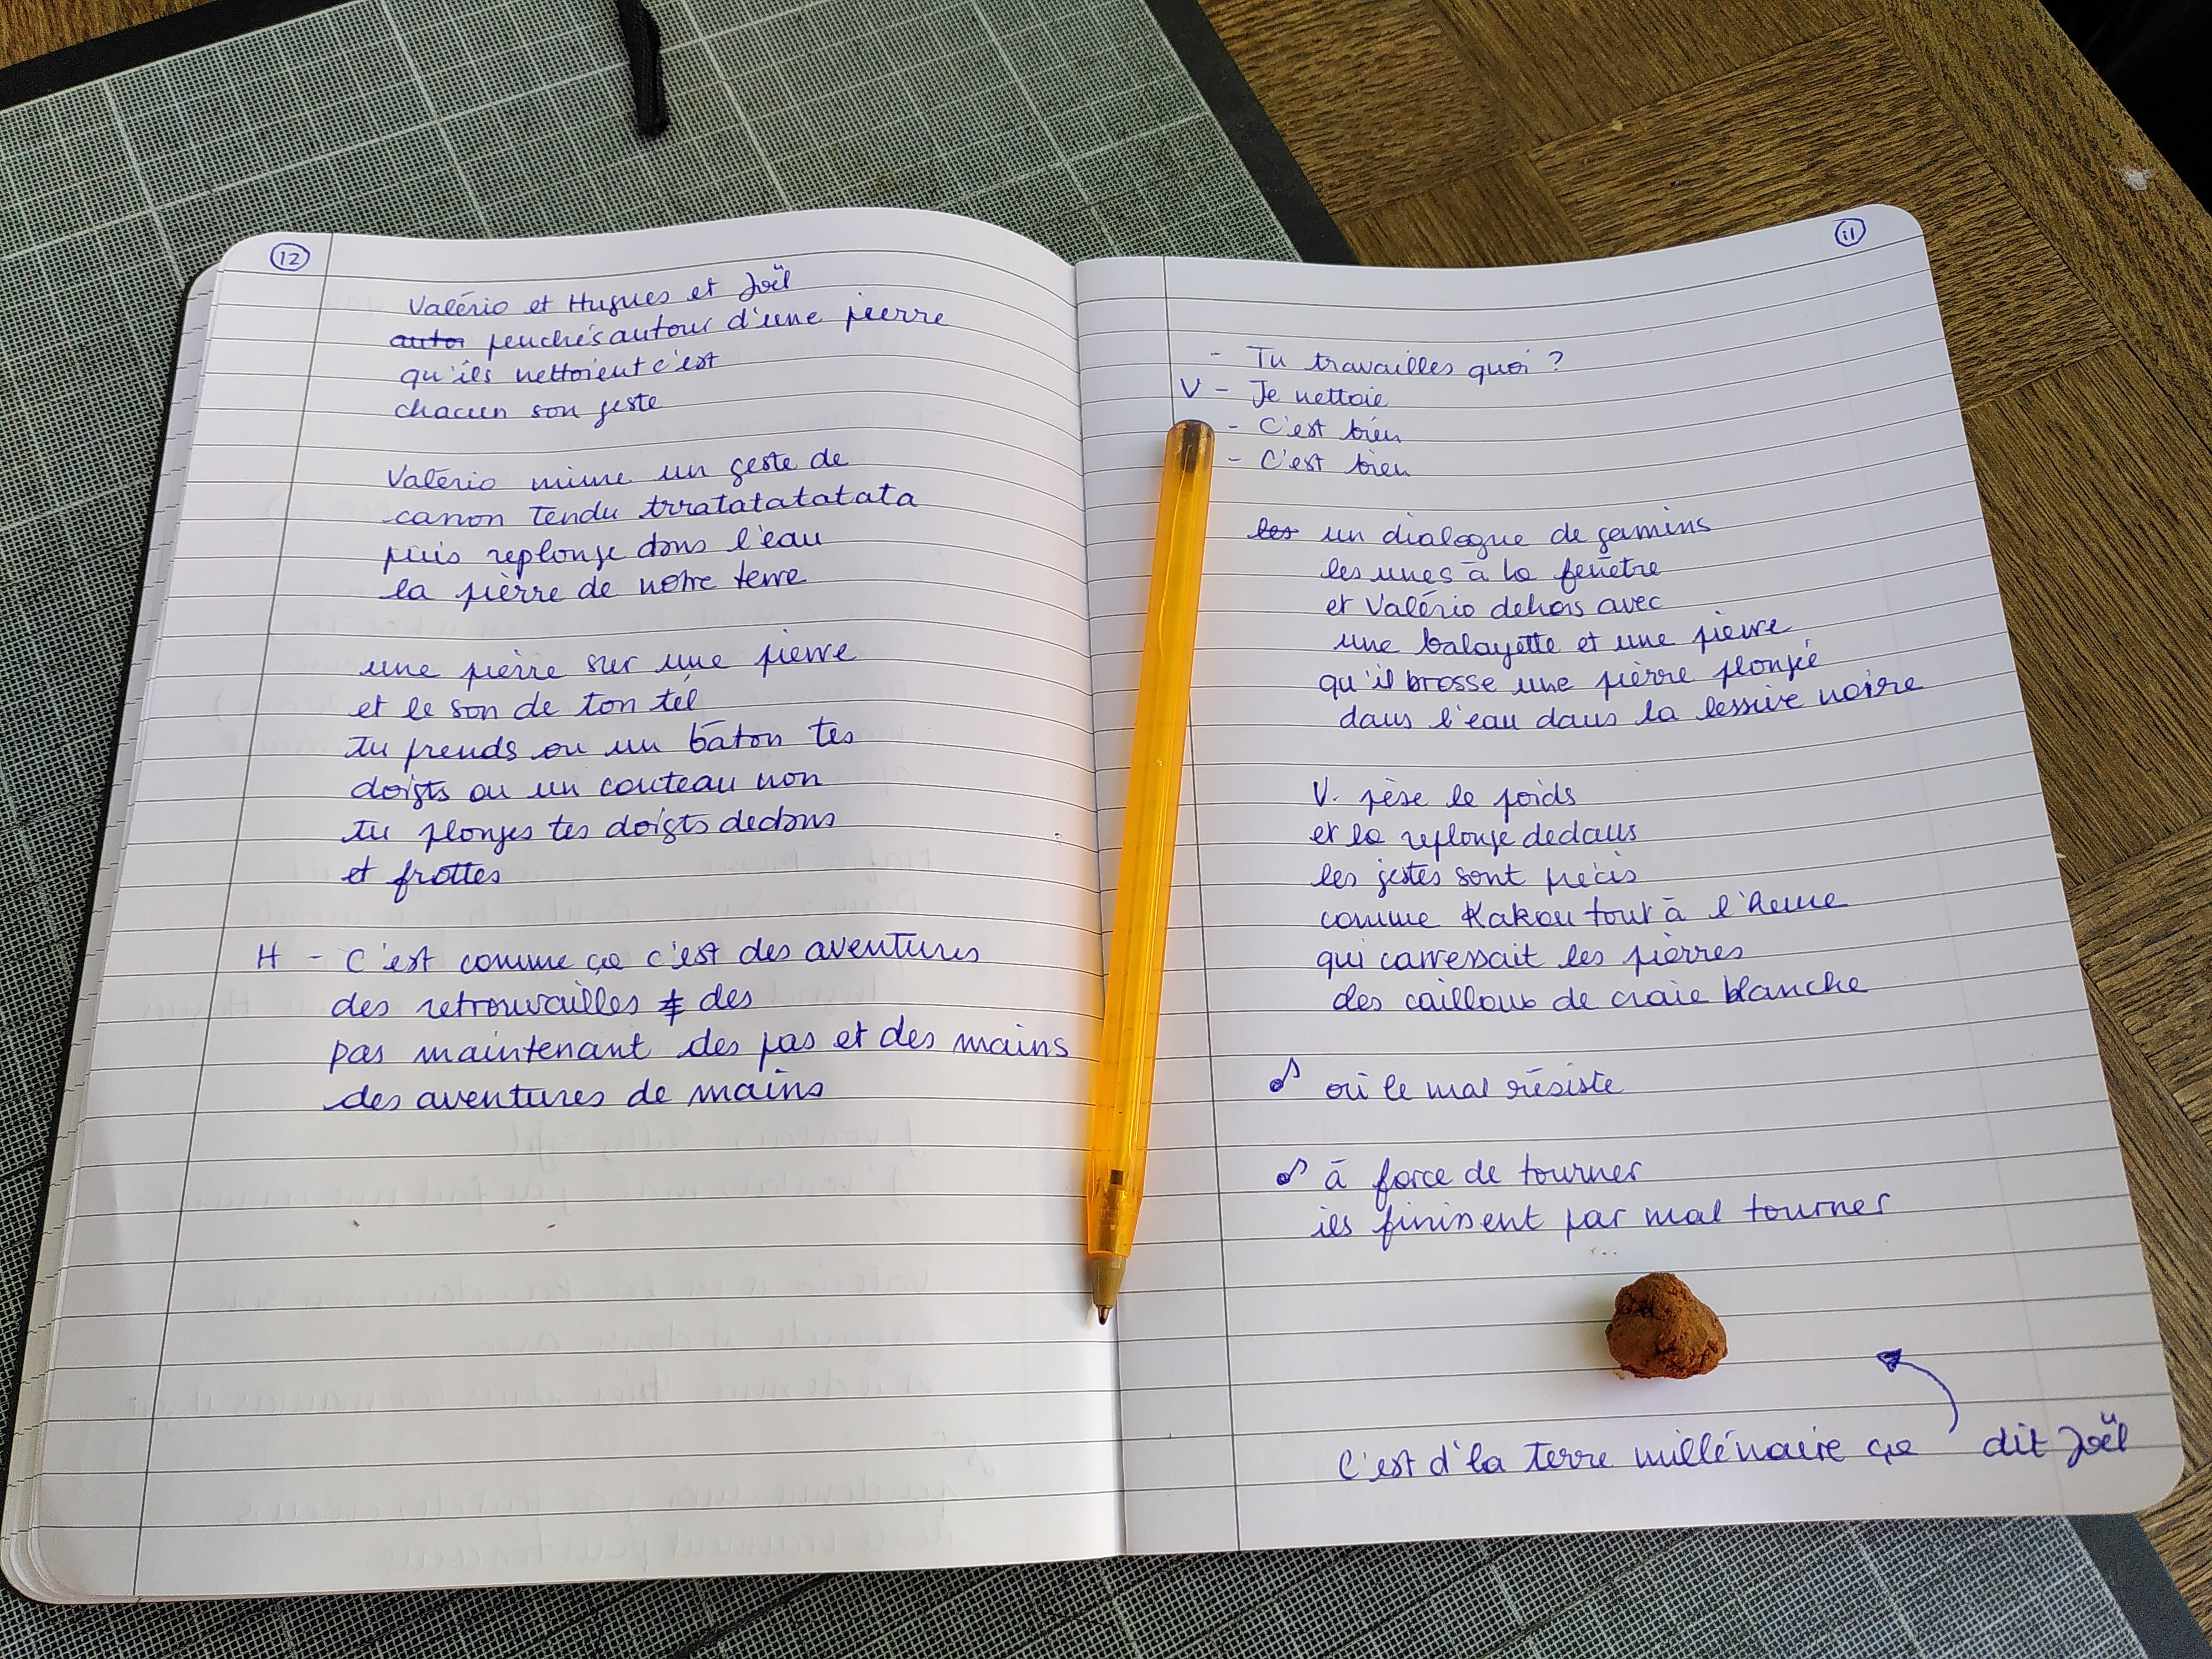 12
Valério et Hugues et Joël
autor penchés autour d'une pierre
qu'ils nettoient c'est
chacun son geste
Valério mime un geste de
canon tendu trratatatatata
puis replonge dans l'eau
la pierre de notre terre
une pierre sur une pierre
et le son de ton tél
tu prends ou un bâton tes
doigts ou un couteau non
tu plonges tes doigts dedans
et frottes
H - C'est comme ça c'est des aventures
des retrouvailles des
pas maintenant des pas et des mains
des aventures de mains
11
- Tu travailles quoi ?
V - Je nettoie
- C'est bien
- C'est bien
les un dialogue de gamins
les unes à la fenêtre
et Valério dehors avec
une balayette et une pierre
qu'il brosse une pierre plongée
dans l'eau dans la lessive noire
V. pèse le poids
et la replonge dedans
les gestes sont précis
comme Kakou tout à l'heure
qui carressait les pierres
des cailloux de craie blanche
♪ où le mal résiste
♪ à force de tourner
ils finissent par mal tourner
C'est d'la terre millénaire ça dit Joël